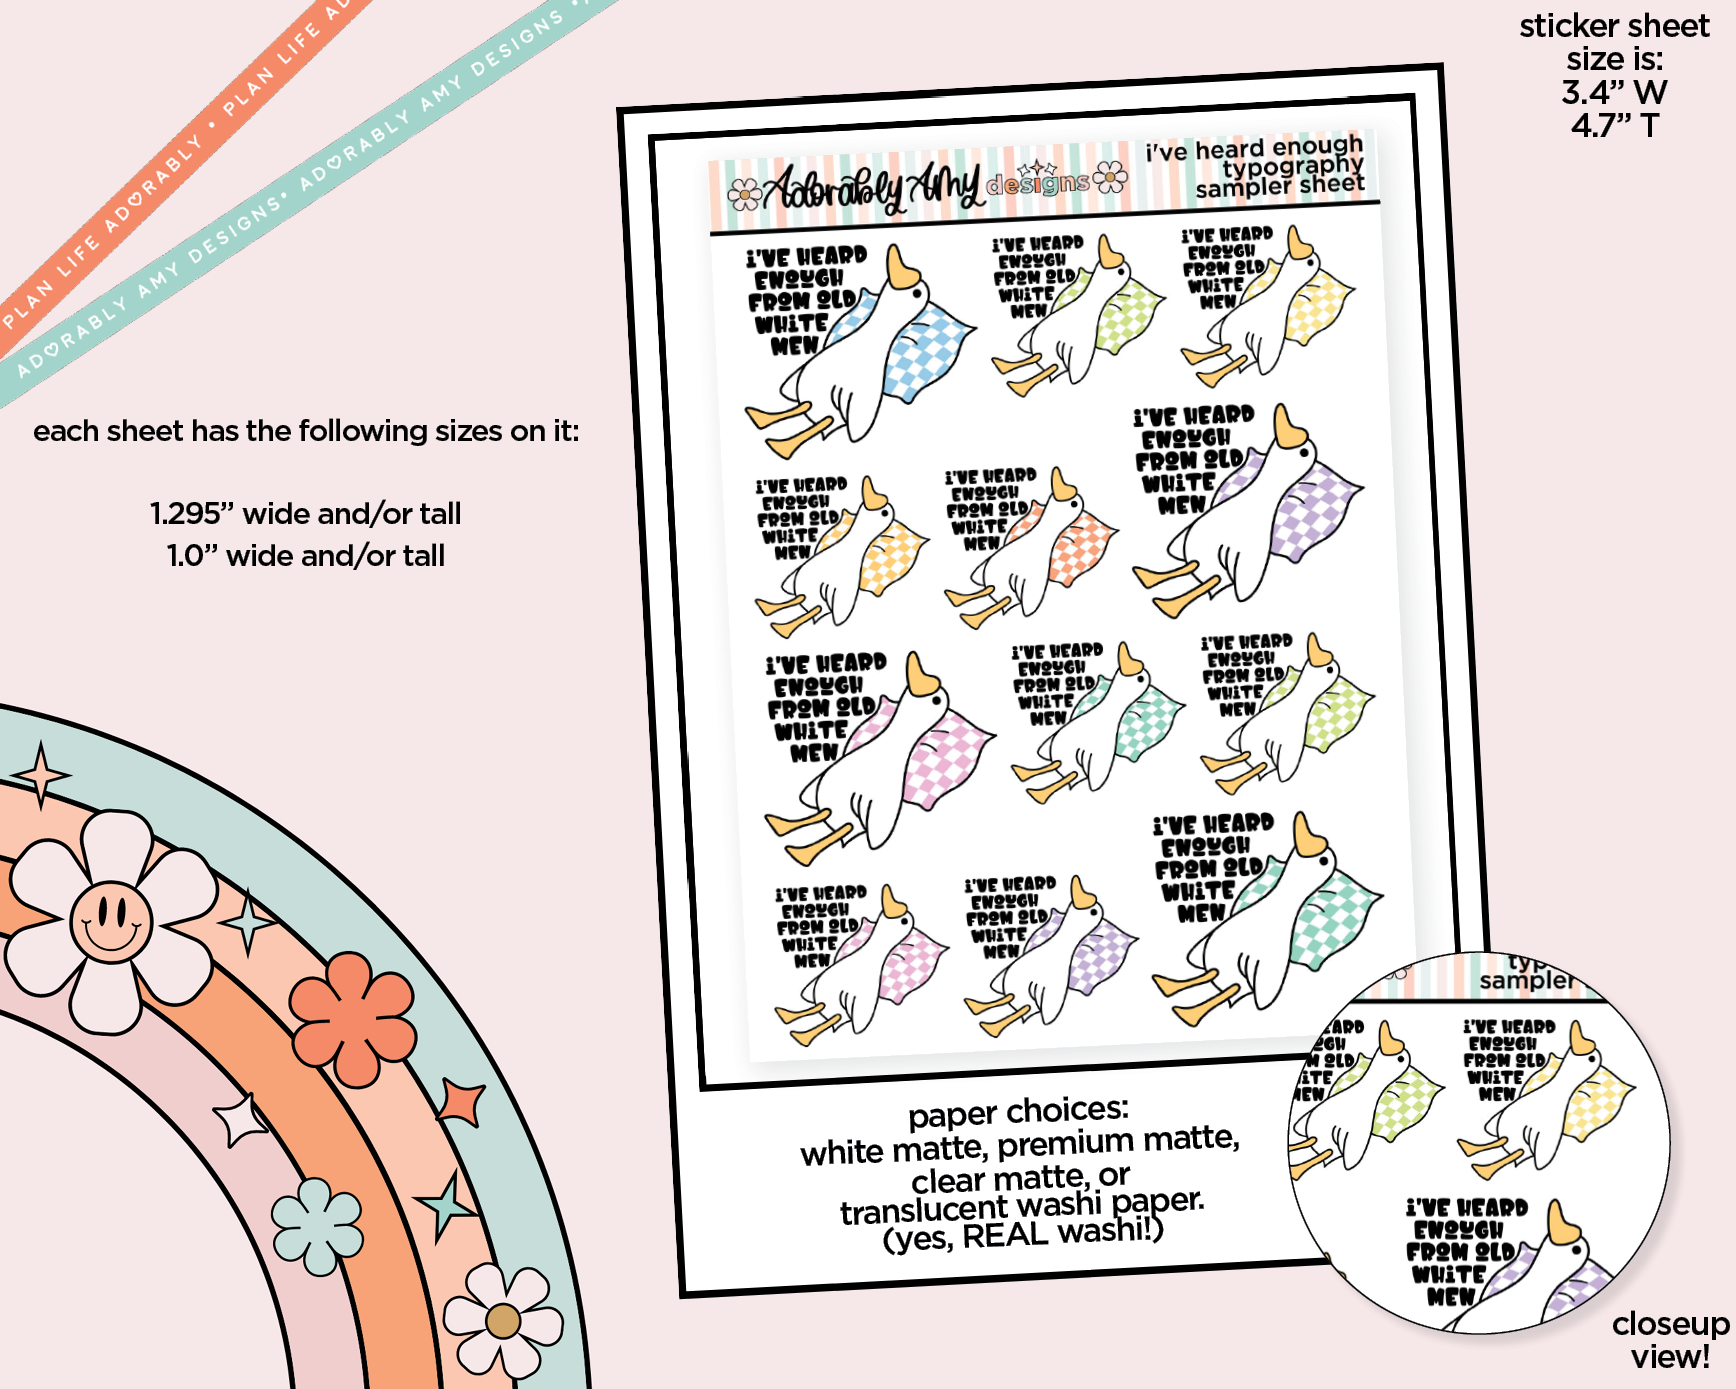 PLAN LIFE ADORABLY • PLAN LIFE AD
ADORABLY AMY DESIGNS • ADORABLY AMY DESIGNS •
sticker sheet
size is:
3.4” W
4.7” T
each sheet has the following sizes on it:
1.295” wide and/or tall
1.0” wide and/or tall
Adorably Amy designs
i've heard enough
typography
sampler sheet
i'VE HEARD
ENOUGH
FROM OLD
WHiTE
MEN
i'VE HEARD
ENOUGH
FROM OLD
WHiTE
MEN
i'VE HEARD
ENOUGH
FROM OLD
WHiTE
MEN
i'VE HEARD
ENOUGH
FROM OLD
WHiTE
MEN
i'VE HEARD
ENOUGH
FROM OLD
WHiTE
MEN
i'VE HEARD
ENOUGH
FROM OLD
WHiTE
MEN
i'VE HEARD
ENOUGH
FROM OLD
WHiTE
MEN
i'VE HEARD
ENOUGH
FROM OLD
WHiTE
MEN
i'VE HEARD
ENOUGH
FROM OLD
WHiTE
MEN
i'VE HEARD
ENOUGH
FROM OLD
WHiTE
MEN
i'VE HEARD
ENOUGH
FROM OLD
WHiTE
MEN
i'VE HEARD
ENOUGH
FROM OLD
WHiTE
MEN
paper choices:
white matte, premium matte,
clear matte, or
translucent washi paper.
(yes, REAL washi!)
sampler
i'VE HEARD
ENOUGH
FROM OLD
WHiTE
MEN
i'VE HEARD
ENOUGH
FROM OLD
WHiTE
MEN
closeup
view!